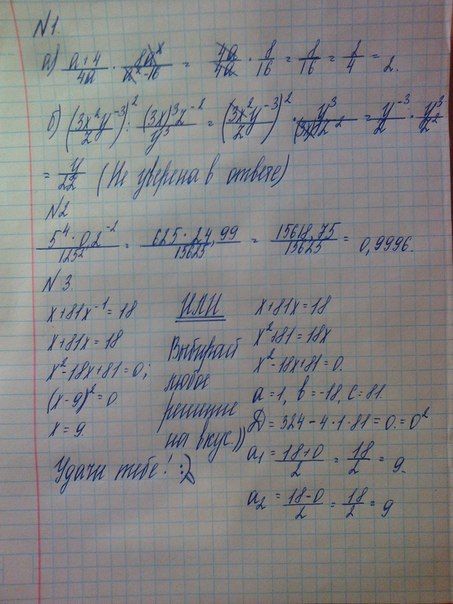 N1.
а) (a+4)/(4a) · (8a^x)/(a²-16) = (4a)/(4a) · 8/16 = 8/16 = 2/4 = 2.
б) (3x²y⁻³/2)² : ((3x)³z⁻²/y³) = (3x²y⁻³/2)² · y³/((3x)³z²) = y⁻³/2 · y³/z² =
= y/2z (Не уверена в ответе)
N2
(5⁴·0,2⁻²)/125² = (625·24,99)/15625 = 15618,75/15625 = 0,9996.
N3.
x+81x⁻¹=18
x+81x=18
x²-18x+81=0;
(x-9)²=0
x=9.
Удачи тебе! :)
ИЛИ
Выбирай
любое
решение
на вкус))
x+81x=18
x²+81=18x
x²-18x+81=0.
a=1, b=-18, c=81.
D=324-4·1·81=0.=0²
a₁=(18+0)/2=18/2=9.
a₂=(18-0)/2=18/2=9